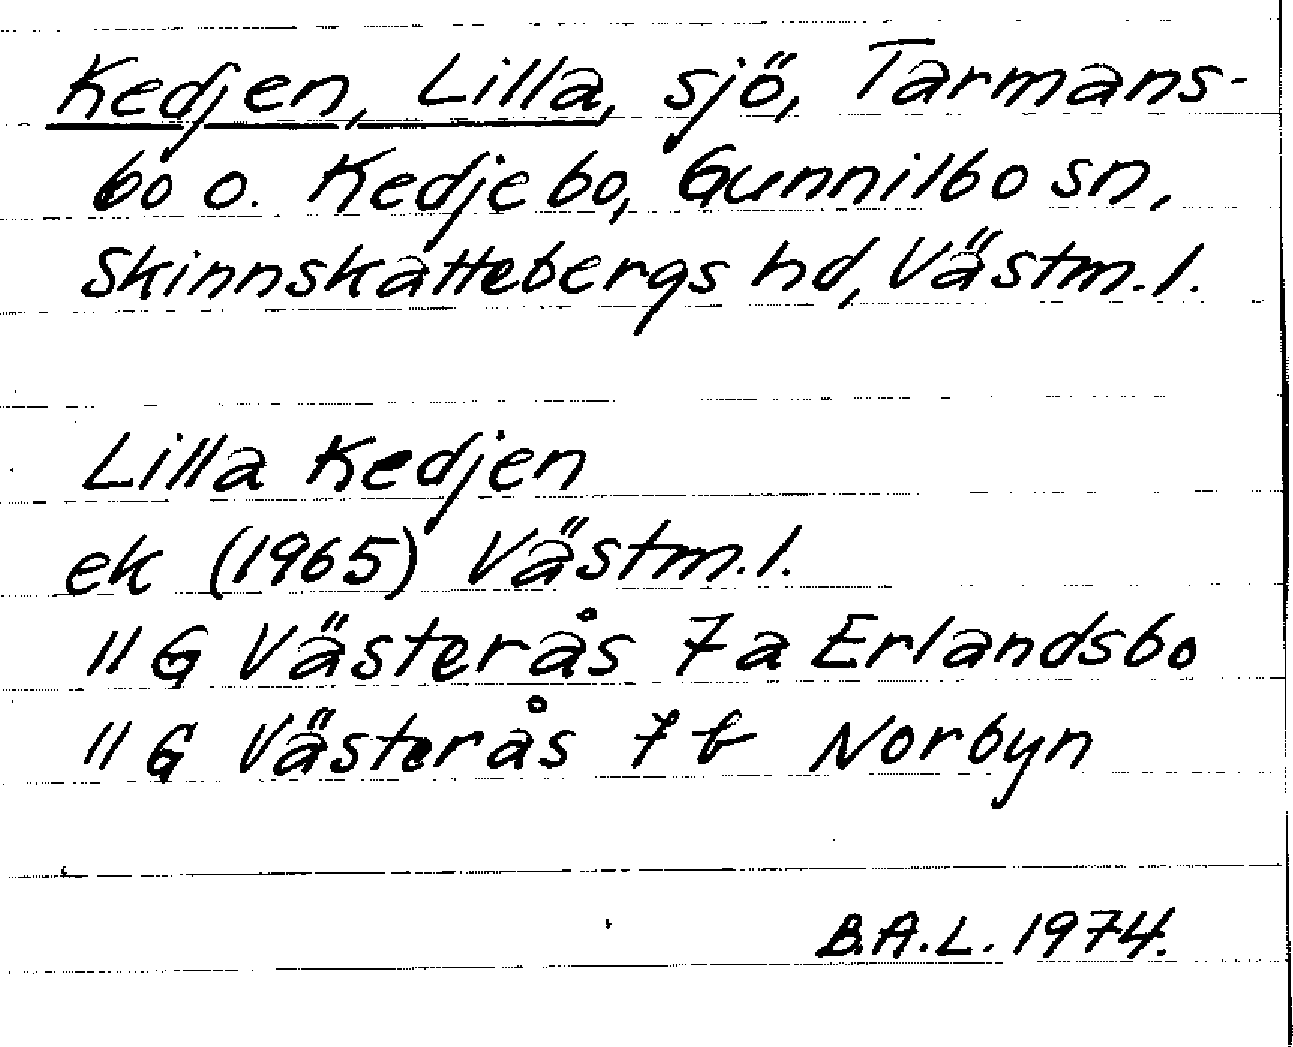 Kedjen, Lilla, sjö, Tarmans-
bo o. Kedjebo, Gunnilbo sn,
Skinnskattebergs hd, Västm.l.
Lilla Kedjen
ek (1965) Västm.l.
11 G Västerås 7a Erlandsbo
11 G Västerås 7b Norbyn
B.A.L. 1974.